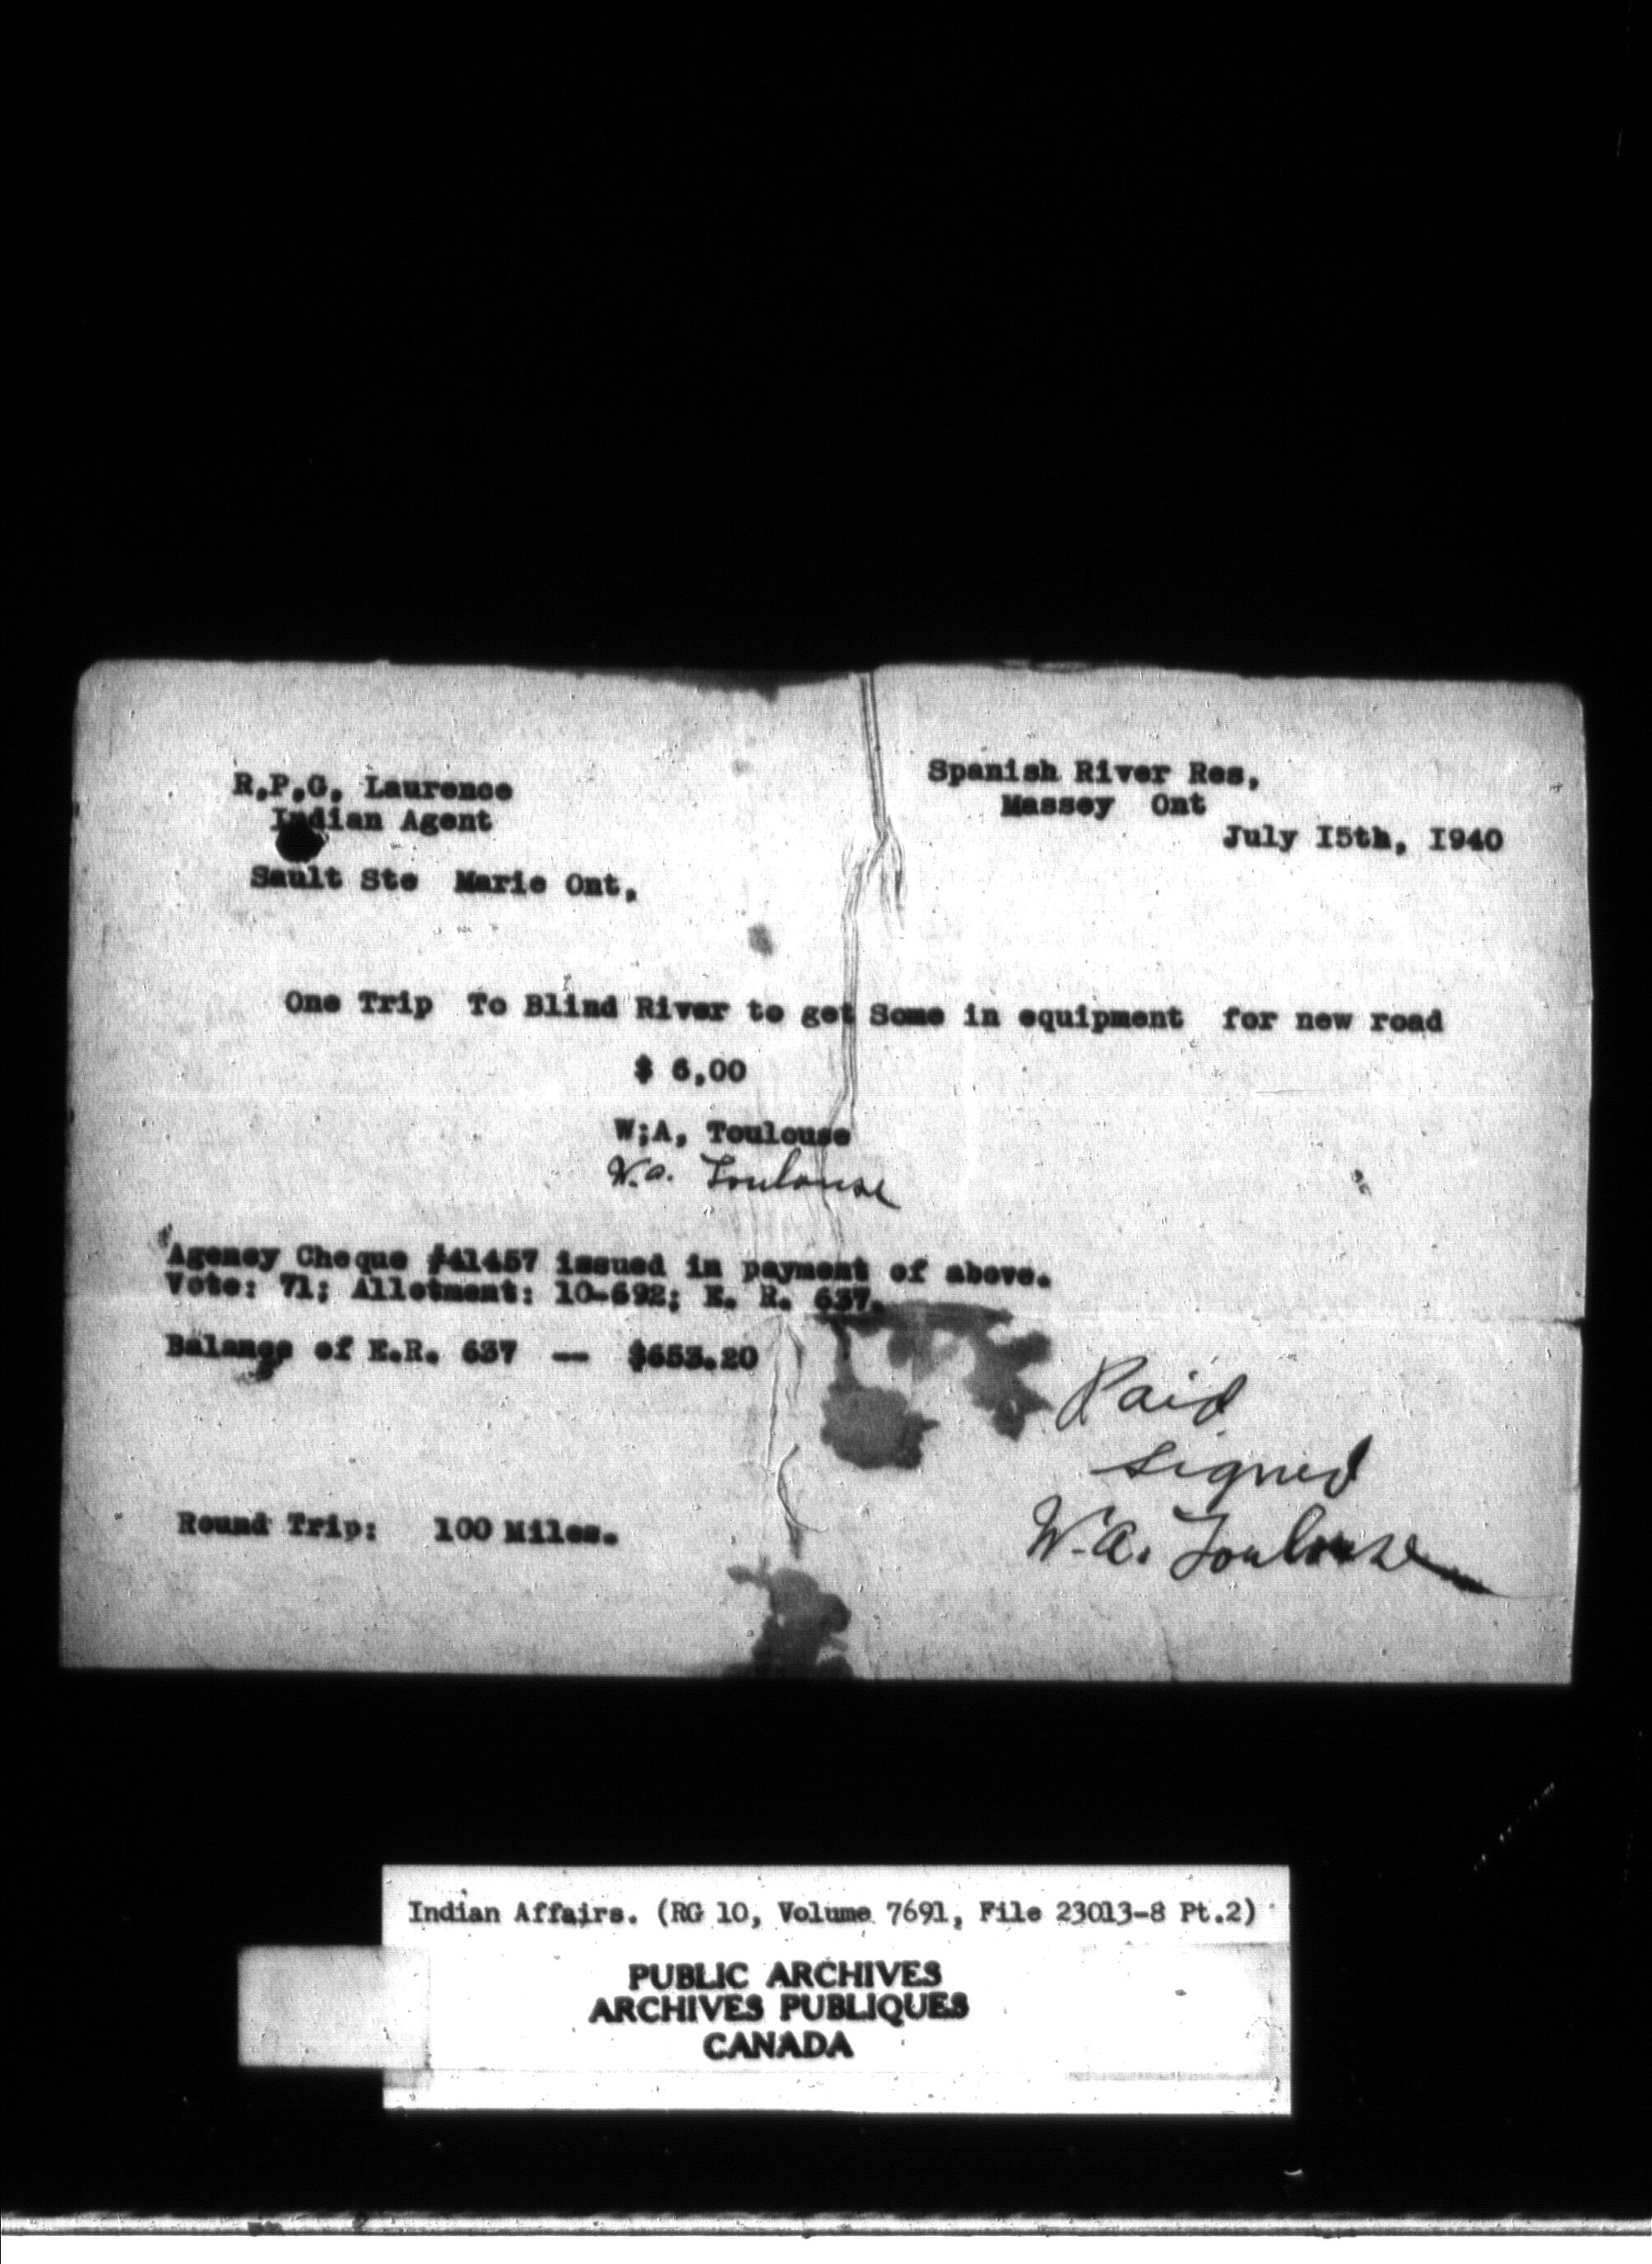 R.P.G. Laurence
Indian Agent
Sault Ste Marie Ont,
Spanish River Res,
Massey Ont
July I5th, I940
One Trip To Blind River to get Some in equipment for new road
$ 6,00
W;A, Toulouse
W.a. Toulouse
Agency Cheque #41457 issued in payment of above.
Vote: 71; Allotment: 10-692; E. R. 637.
Balance of E.R. 637 -- $653.20
Paid
signed
W.a. Toulouse
Round Trip: 100 Miles.
Indian Affairs. (RG 10, Volume 7691, File 23013-8 Pt.2)
PUBLIC ARCHIVES
ARCHIVES PUBLIQUES
CANADA